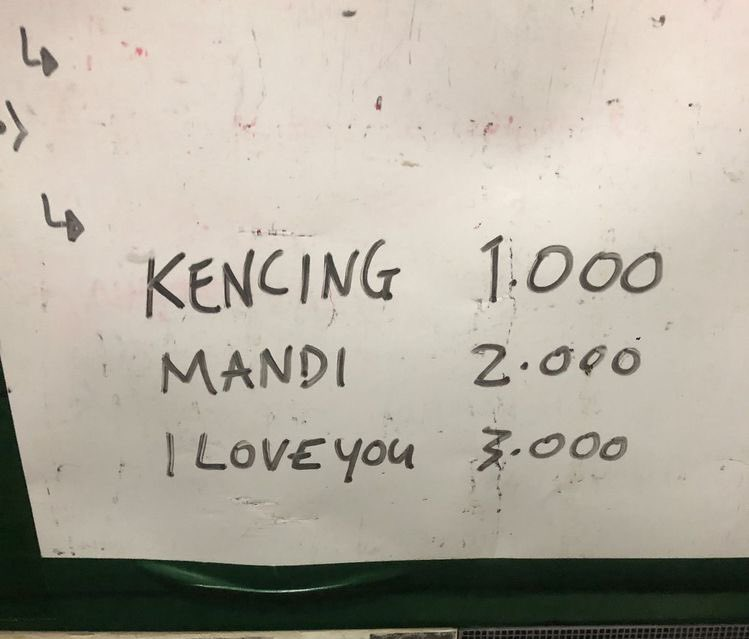 KENCING 1.000
MANDI 2.000
I LOVE YOU 3.000